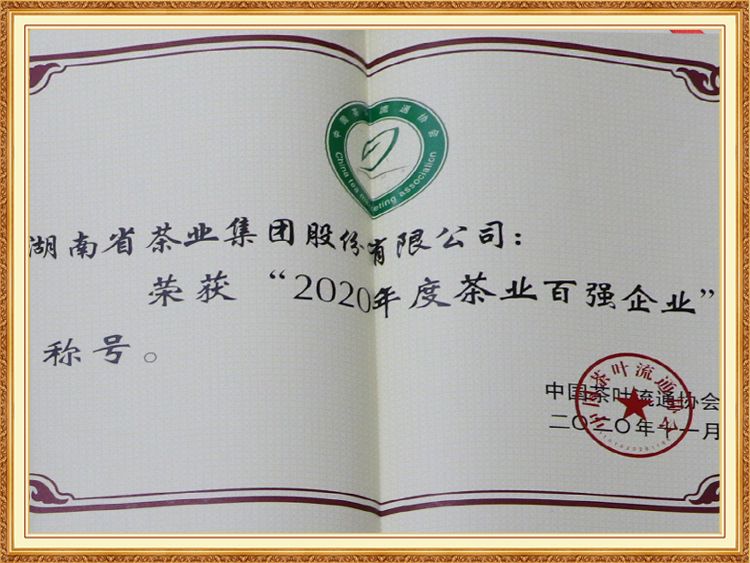 中国茶叶流通协会
China tea marketing association
湖南省茶业集团股份有限公司：
荣获“2020年度茶业百强企业”
称号。
中国茶叶流通协会
二〇二〇年十一月
中国茶叶流通协会